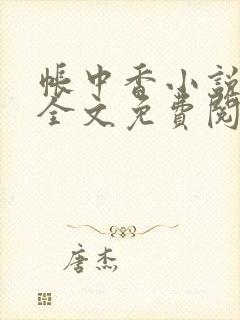 帐中香小説
全文免費閱
唐杰